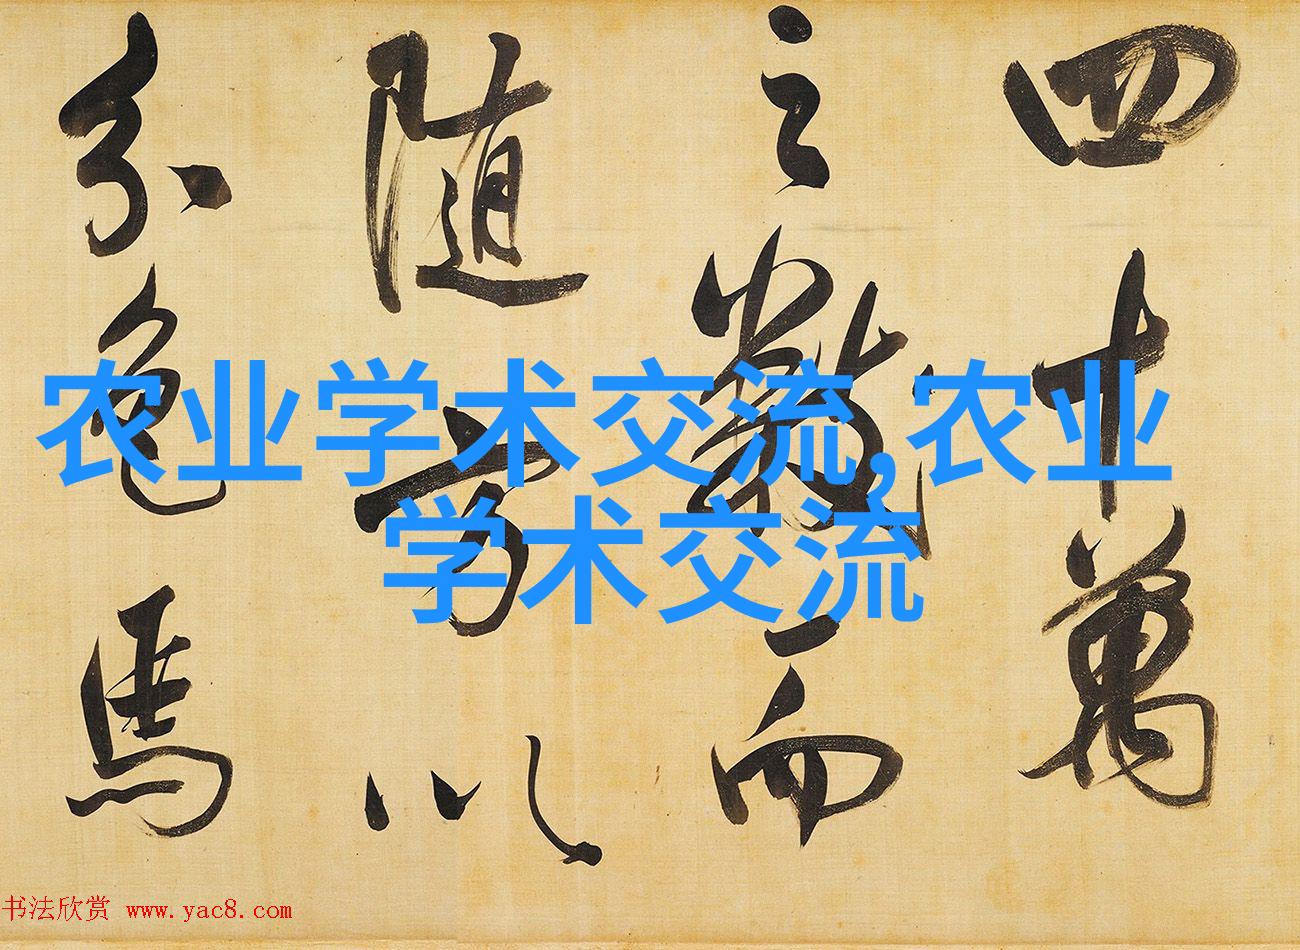 四十萬
之數而
隨方以
分色焉
农业学术交流,农业
学术交流
书法欣赏 www.yac8.com